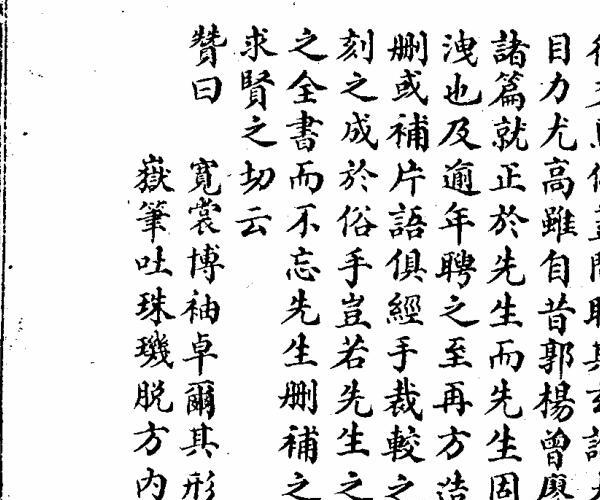 目力尤高雖自昔郭楊曾廖
諸篇就正於先生而先生固
洩也及逾年聘之至再方造
刪或補片語俱經手裁較之
刻之成於俗手豈若先生之
之全書而不忘先生刪補之
求賢之切云
贊曰 寬裳博袖卓爾其形
嶽筆吐珠璣脫方內